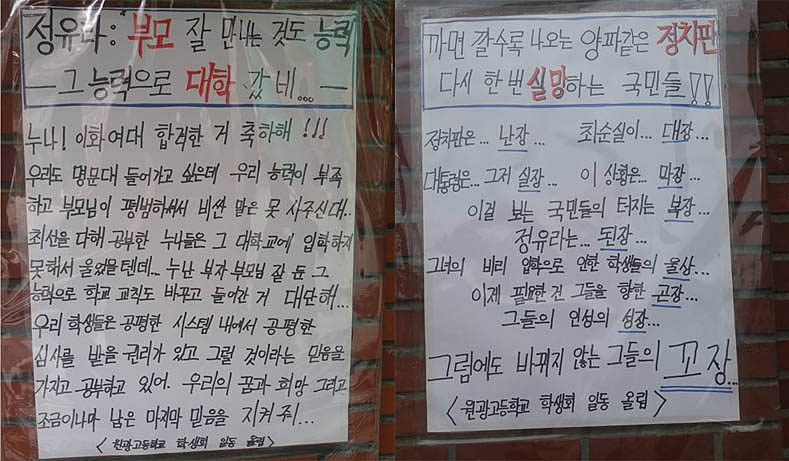 정유라: 부모 잘 만나는 것도 능력
— 그 능력으로 대학 갔네... —
누나! 이화여대 합격한 거 축하해!!!
우리도 명문대 들어가고 싶은데 우리 능력이 부족
하고 부모님이 평범하셔서 비싼 말은 못 사주신대..
최선을 다해 공부한 누나들은 그 대학교에 입학하지
못해서 울었을텐데... 누난 부자 부모님 잘 둔 그
능력으로 학교 교칙도 바꾸고 들어간 거 대단해...
우리 학생들은 공평한 시스템 내에서 공평한
심사를 받을 권리가 있고 그럴 것이라는 믿음을
가지고 공부하고 있어. 우리의 꿈과 희망 그리고
조금이나마 남은 마지막 믿음을 지켜줘!...
< 원광고등학교 학생회 일동 올림 >
까면 깔수록 나오는 양파같은 정치판
다시 한 번 실망하는 국민들!!
정치판은... 난장... 최순실이... 대장...
대통령은... 그저 실장... 이 상황은... 막장...
이걸 보는 국민들의 터지는 복장...
정유라는... 된장...
그녀의 비리 입학으로 인한 학생들의 울상...
이제 필요한 건 그들을 향한 곤장...
그들의 인성의 성장...
그럼에도 바뀌지 않는 그들의 꼬장...
< 원광고등학교 학생회 일동 올림 >